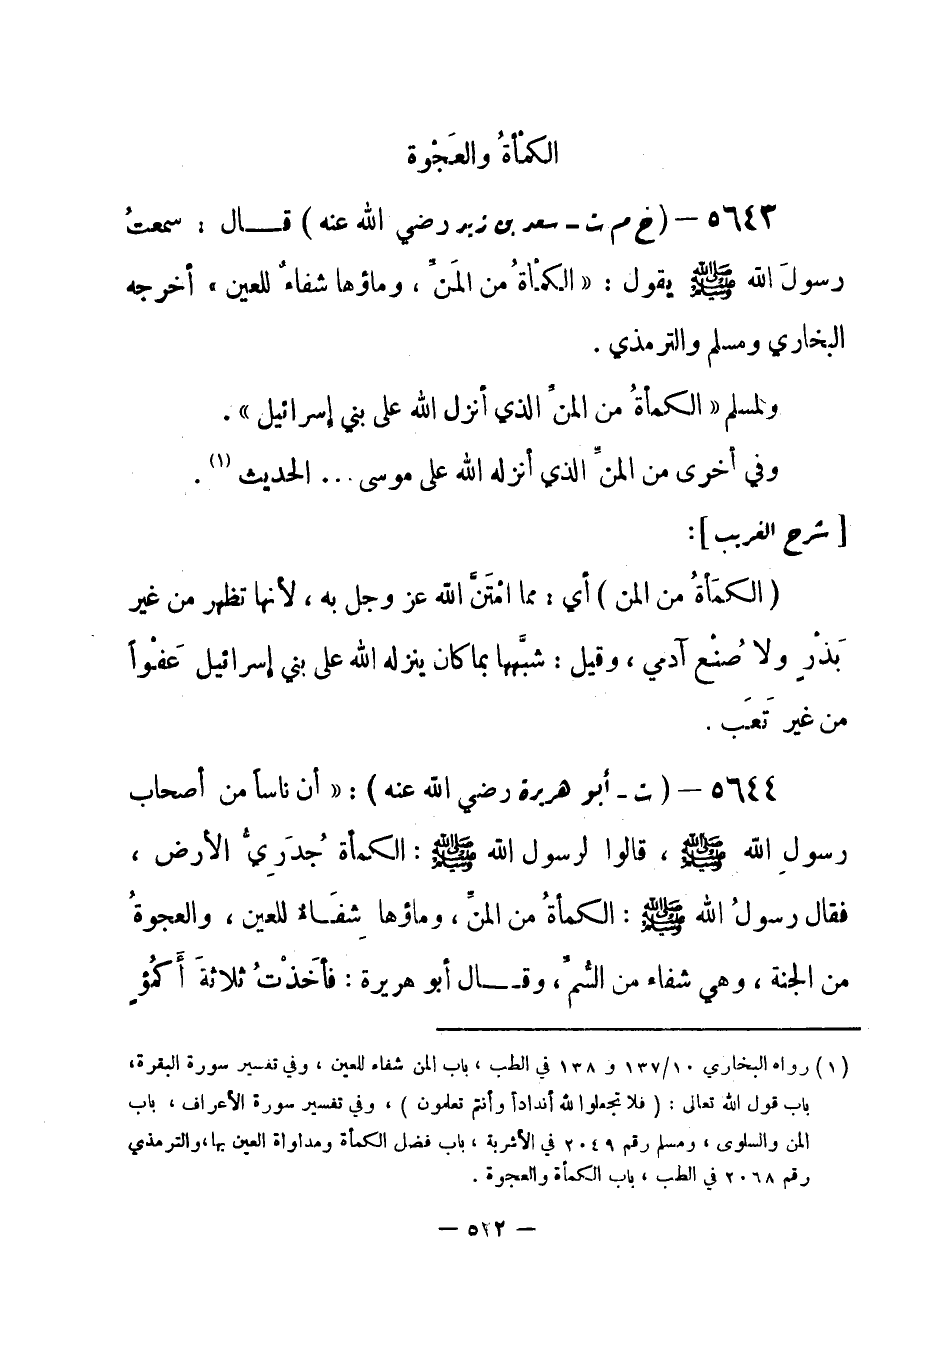 الكمْأةُ والعَجْوة
٥٦٤٣ – (خ م ت - سعد بن زيد رضي الله عنه) قال : سمعتُ
رسولَ الله ﷺ يقول : « الكمْأةُ من المَنِّ ، وماؤها شفاءٌ للعين » أخرجه
البخاري ومسلم والترمذي .
ولمسلم « الكمأةُ من المنِّ الذي أنزل الله على بني إسرائيل » .
وفي أخرى من المنِّ الذي أنزله الله على موسى ... الحديث (١) .
[ شرح الغريب ]:
( الكَمْأةُ من المن ) أي : مما امْتَنَّ الله عز وجل به ، لأنها تظهر من غير
بَذْرٍ ولا صُنْع آدمي ، وقيل : شبَّهها بما كان ينزله الله على بني إسرائيل عَفْواً
من غير تَعَب .
٥٦٤٤ – ( ت - أبو هريرة رضي الله عنه ) : « أن ناساً من أصحاب
رسولِ الله ﷺ ، قالوا لرسول الله ﷺ : الكمأة جُدَرِيُّ الأرض ،
فقال رسولُ الله ﷺ : الكمأةُ من المنِّ ، وماؤها شِفَاءٌ للعين ، والعجوةُ
من الجنة ، وهي شفاء من السُّمِّ ، وقال أبو هريرة : فأخَذْتُ ثلاثةَ أَكْمُؤٍ
(١) رواه البخاري ١٣٧/١٠ و ١٣٨ في الطب ، باب المن شفاء للعين ، وفي تفسير سورة البقرة،
باب قول الله تعالى : ( فلا تجعلوا لله أنداداً وأنتم تعلمون ) ، وفي تفسير سورة الأعراف ، باب
المن والسلوى ، ومسلم رقم ٢٠٤٩ في الأشربة ، باب فضل الكمأة ومداواة العين بها،والترمذي
رقم ٢٠٦٨ في الطب ، باب الكمأة والعجوة .
– ٥٢٢ –